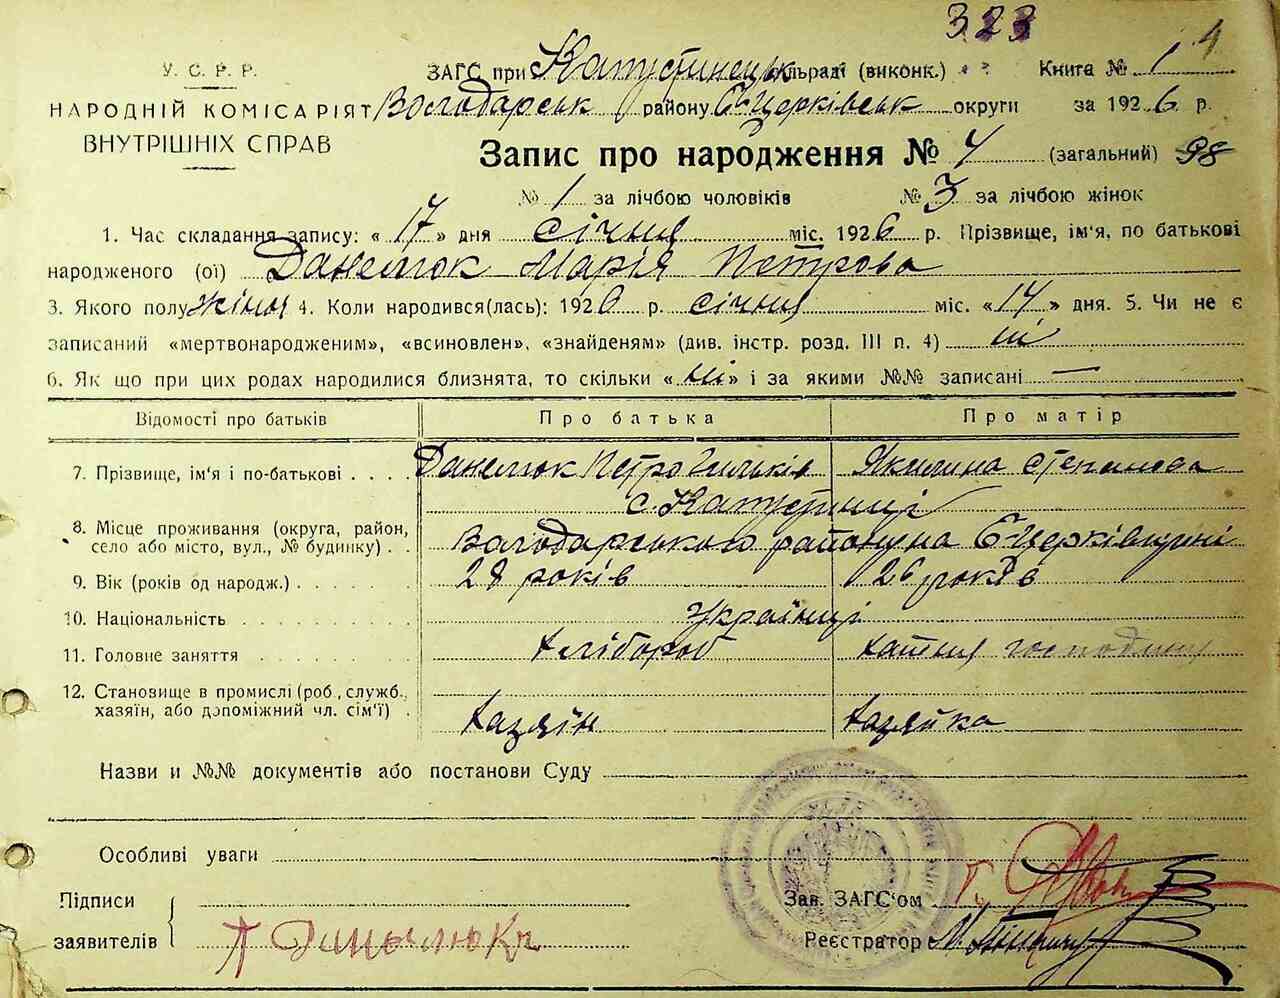 323
4
У. С. Р. Р.
НАРОДНІЙ КОМІСАРІЯТ
ВНУТРІШНІХ СПРАВ
ЗАГС при Капустинецьк сільраді (виконк.) Книга № 1
Володарськ району Б-Церківськ округи за 1926 р.
Запис про народження № 4 (загальний) 98
№ 1 за лічбою чоловіків № 3 за лічбою жінок
1. Час складання запису: « 17 » дня січня міс. 1926 р. Прізвище, ім'я, по батькові
народженого (ої) Данелюк Марія Петрова
3. Якого полу жіноч 4. Коли народився(лась): 1926 р. січня міс. «14» дня. 5. Чи не є
записаний «мертвонародженим», «всиновлен», «знайденям» (див. інстр. розд. III п. 4) ні
6. Як що при цих родах народилися близнята, то скільки « ні » і за якими №№ записані —
Відомості про батьків Про батька Про матір
7. Прізвище, ім'я і по-батькові . . . . Данелюк Петро Якилина Степанова
с. Капустинці
8. Місце проживання (округа, район, село або місто, вул., № будинку) . . Володарського району на Б-Церківщині
9. Вік (років од народж.) . . . . . . 28 років 26 років
10. Національність . . . . . . . . . Українці
11. Головне заняття . . . . . . . . хлібороб хатня господиня
12. Становище в промислі (роб., служб., хазяїн, або допоміжний чл. сім'ї) . хазяїн хазяйка
Назви и №№ документів або постанови Суду
Особливі уваги
Підписи
заявителів
П Данылюкъ
Зав. ЗАГС'ом
Реєстратор